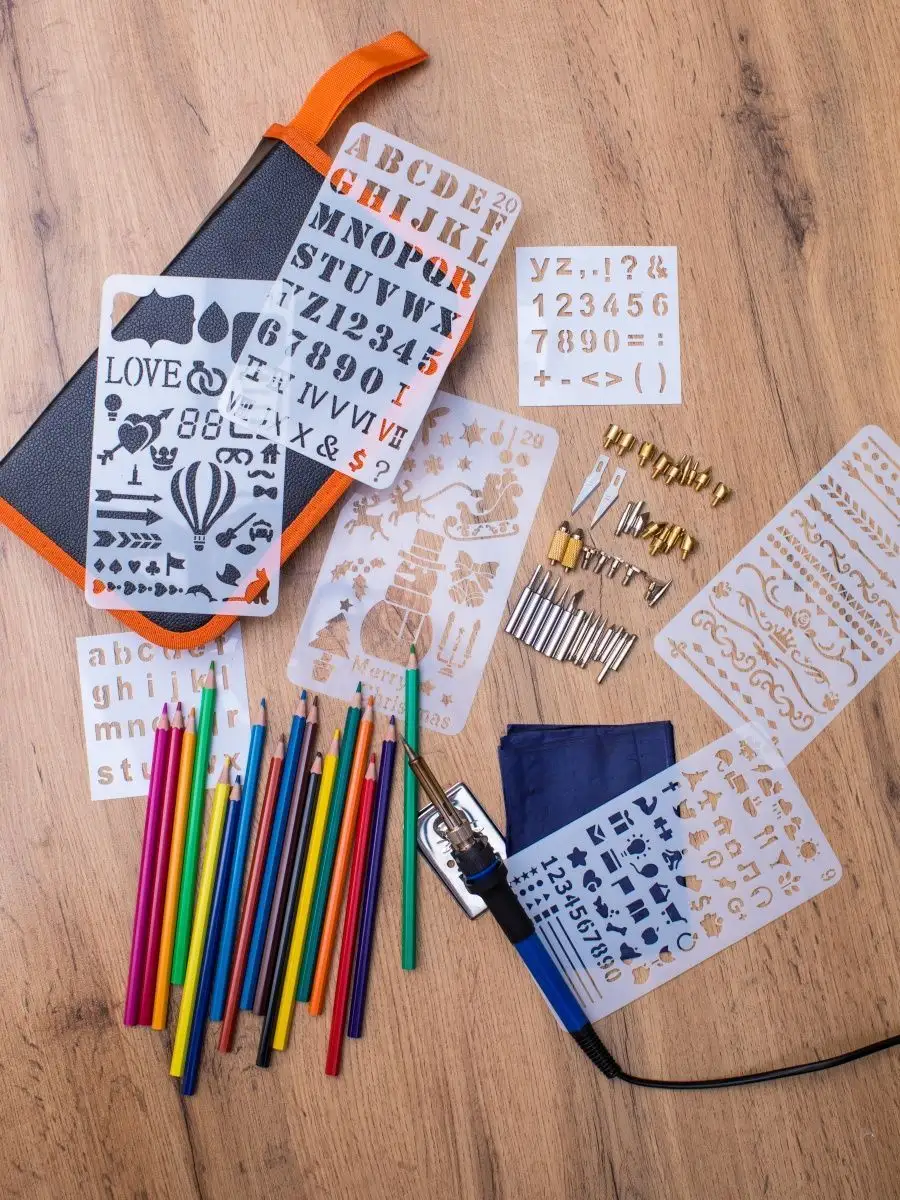 ABCDEF
20
GHIJKL
MNOPQR
STUVWX
YZ12345
67890 I
IV V VI VII
X & $ ?
LOVE
yz,.!?&
123456
7890=:
+-<>()
29
Merry
Christmas
abcdef
ghijkl
mn
r
stu
x
1234567890
G
9